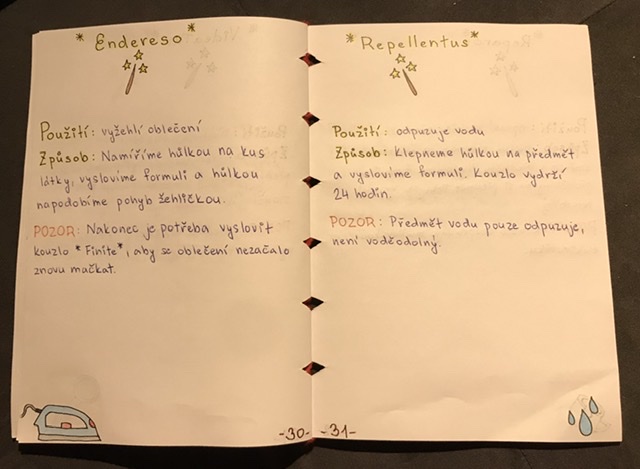 * Endereso *
Použití: vyžehlí oblečení
Způsob: Namíříme hůlkou na kus
látky, vyslovíme formuli a hůlkou
napodobíme pohyb žehličkou.
POZOR: Nakonec je potřeba vyslovit
kouzlo *Finite*, aby se oblečení nezačalo
znovu mačkat.
-30-
*Repellentus*
Použití: odpuzuje vodu
Způsob: Klepneme hůlkou na předmět
a vyslovíme formuli. Kouzlo vydrží
24 hodin.
POZOR: Předmět vodu pouze odpuzuje,
není voděodolný.
-31-